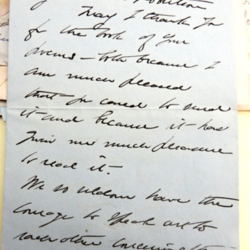 May I thank you
for the book of your
poems – both because I
am much pleased
that you cared to send
it and because it has
given me much pleasure
to read it.
We so seldom have the
courage to speak out to
each other concerning